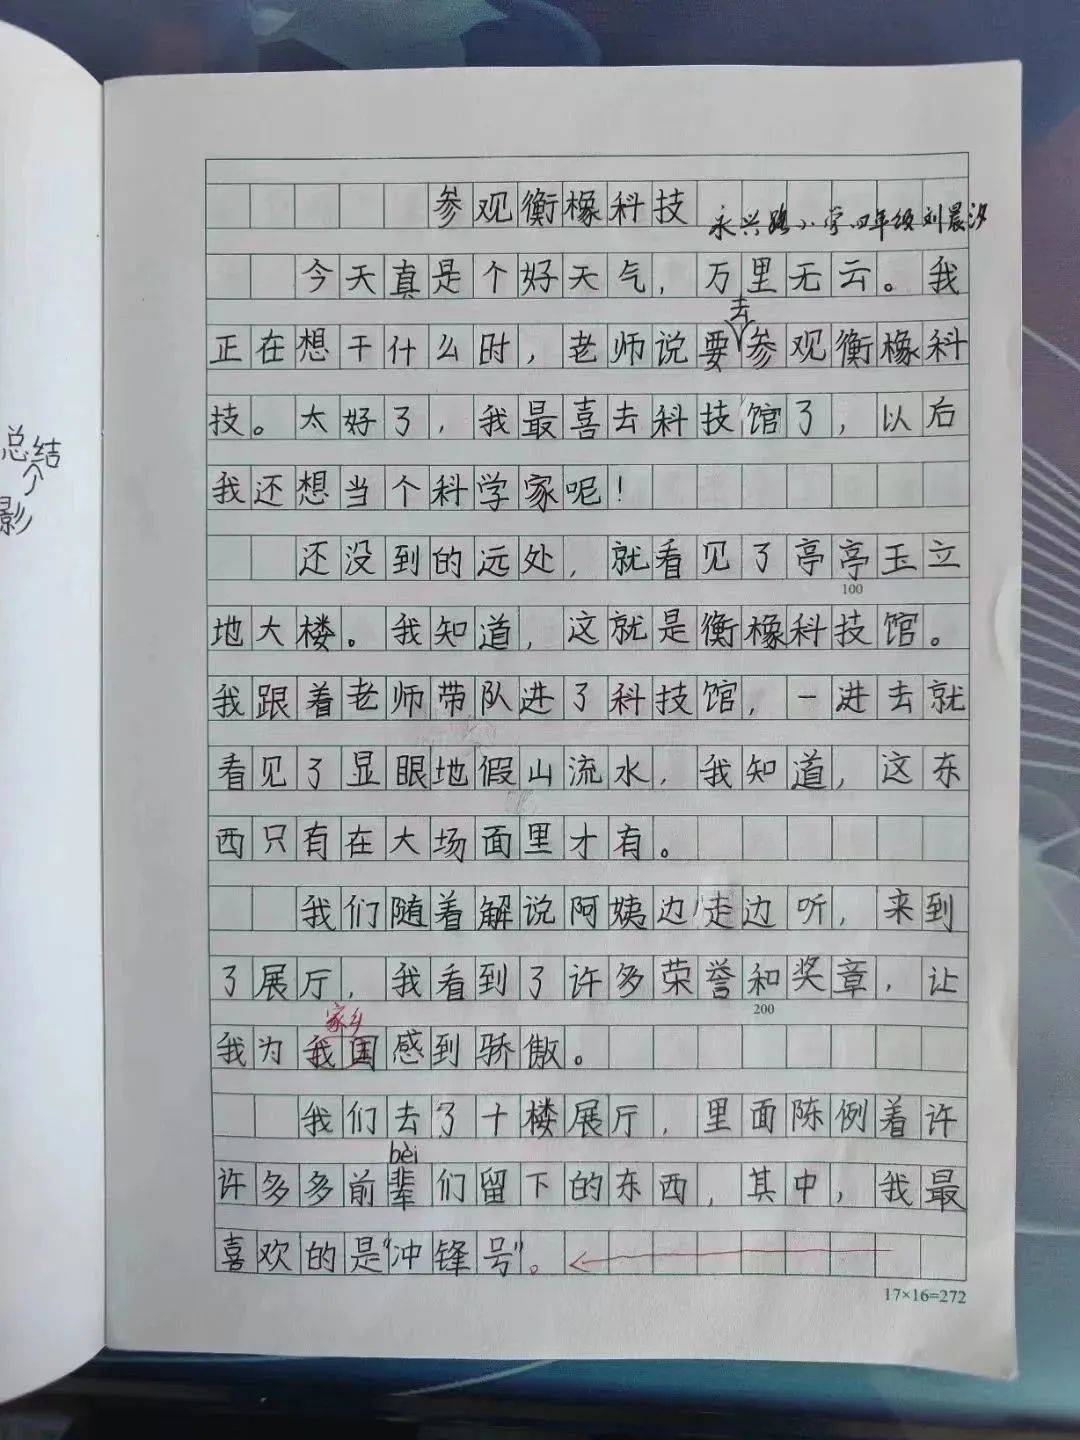 参观衡橡科技
永兴路小学四年级刘晨汐
今天真是个好天气，万里无云。我
去
正在想干什么时，老师说要参观衡橡科
技。太好了，我最喜去科技馆了，以后
我还想当个科学家呢！
还没到的远处，就看见了亭亭玉立
100
地大楼。我知道，这就是衡橡科技馆。
我跟着老师带队进了科技馆，一进去就
看见了显眼地假山流水，我知道，这东
西只有在大场面里才有。
我们随着解说阿姨边走边听，来到
了展厅，我看到了许多荣誉和奖章，让
200
家乡
我为我国感到骄傲。
我们去了十楼展厅，里面陈例着许
bèi
许多多前辈们留下的东西，其中，我最
喜欢的是“冲锋号”。
17×16=272
总结
个
影